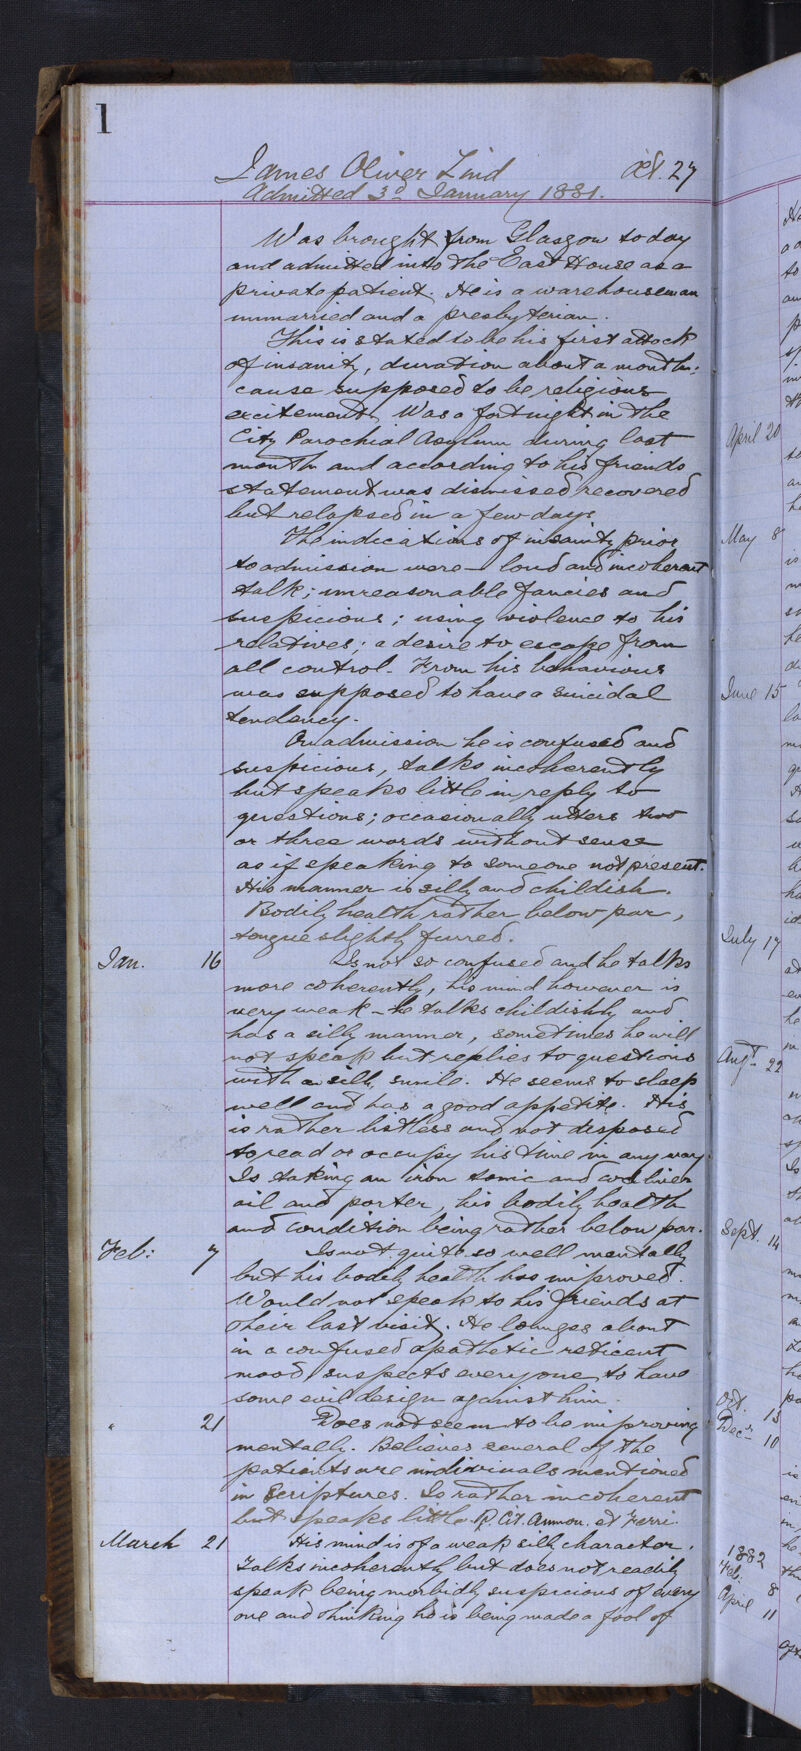 1
James Oliver Lind aet. 27
Admitted 3d January 1881.
Was brought from Glasgow today
and admitted into the East House as a
private patient. He is a warehouseman
unmarried and a presbyterian.
This is stated to be his first attack
of insanity, duration about a month:
cause supposed to be religious
excitement. Was a fortnight in the
City Parochial Asylum during last
month and according to his friends
statement was dismissed recovered
but relapsed in a few days.
The indications of insanity prior
to admission were – loud and incoherent
talk; unreasonable fancies and
suspicions; using violence to his
relatives; a desire to escape from
all control. From his behaviour
was supposed to have a suicidal
tendency.
On admission he is confused and
suspicious, talks incoherently
but speaks little in reply to
questions; occasionally utters two
or three words without sense
as if speaking to someone not present.
His manner is silly and childish.
Bodily health rather below par,
tongue slightly furred.
Jan. 16 Is not so confused and he talks
more coherently, his mind however is
very weak – he talks childishly and
has a silly manner, sometimes he will
not speak but replies to questions
with a silly smile. He seems to sleep
well and has a good appetite. His
is rather listless and not disposed
to read or occupy his time in any way.
Is taking an iron tonic and cod liver
oil and porter, his bodily health
and condition being rather below par.
Feb: 7 Is not quite so well mentally
but his bodily health has improved.
Would not speak to his friends at
their last visit. He lounges about
in a confused apathetic reticent
mood, suspects everyone to have
some evil design against him.
" 21 Does not seem to be improving
mentally. Believes several of the
patients are individuals mentioned
in Scriptures. Is rather incoherent
but speaks little. R. Cit. Ammon. et Ferri
March 21 His mind is of a weak silly character.
Talks incoherently but does not readily
speak being morbidly suspicious of every
one and thinking he is being made a fool of
April 20
May 8
June 15
July 17
Augt. 22
Sept. 14
Oct. 13
Decr. 10
1882
Feb. 8
April 11